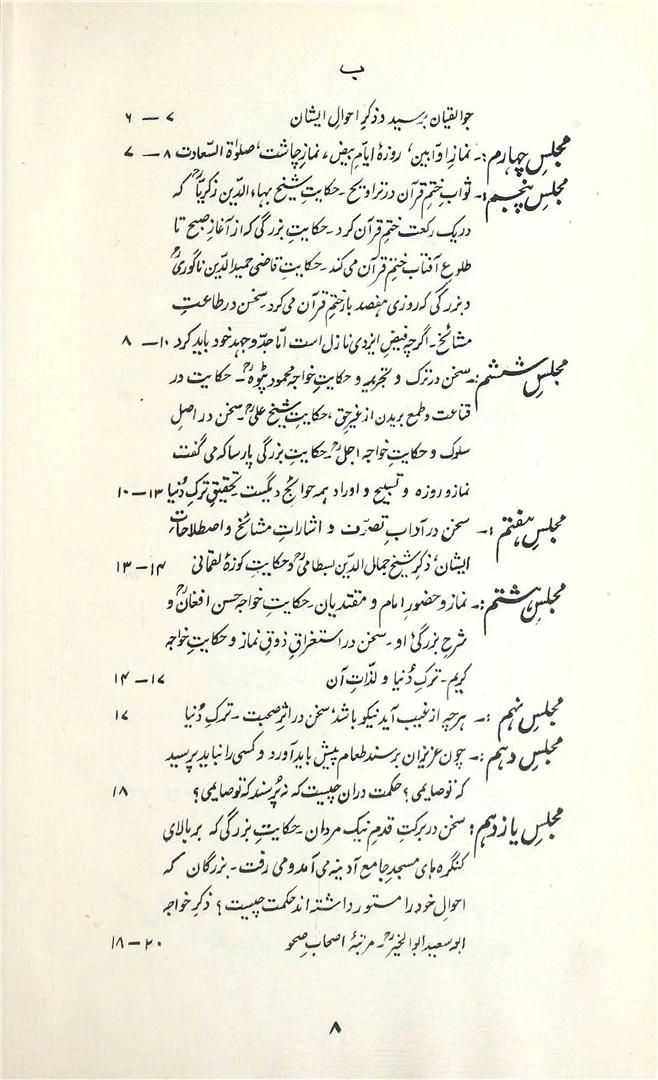 ب
جوالقیان برسید و ذکرِ احوالِ ایشان ۷ — ۶
مجلسِ چهارم :۔ نمازِ اوّابین، روزهٔ ایّامِ بیض، نمازِ چاشت، صلوٰة السّعادت ۸ — ۷
مجلسِ پنجم :۔ ثوابِ ختمِ قرآن در تراویح ۔ حکایتِ شیخ بهاء الدّین زکریّاؒ که
در یک رکعت ختمِ قرآن کرد ۔ حکایتِ بزرگی که از آغازِ صبح تا
طلوعِ آفتاب ختمِ قرآن می کند ۔ حکایتِ قاضی حمید الدّین ناگوریؒ
و بزرگی که روزی هفصد بار ختمِ قرآن می کرد ۔ سخن در طاعتِ
مشائخ ۔ اگرچه فیضِ ایزدی نازل است امّا جدّ و جهدِ خود باید کرد ۱۰ — ۸
مجلسِ ششم :۔ سخن در ترک و تجرید و حکایتِ خواجه محمود پٹوهؒ ۔ حکایت در
قناعت و طمع بریدن از غیرِ حق، حکایتِ شیخ علیؒ ۔ سخن در اصلِ
سلوک و حکایتِ خواجه اجلؒ ۔ حکایتِ بزرگی پارسا که می گفت
نماز و روزه و تسبیح و اوراد همه حوائجِ دیگست تحقیقِ ترکِ دُنیا ۱۳ — ۱۰
مجلسِ هفتم :۔ سخن در آدابِ تصرّف و اشاراتِ مشائخ و اصطلاحاتِ
ایشان، ذکرِ شیخ جمال الدّین بسطامیؒ و حکایتِ کوزهٔ لقمانی ۱۴ — ۱۳
مجلسِ هشتم :۔ نماز و حضورِ امام و مقتدیان ۔ حکایتِ خواجه حسن افغانؒ و
شرحِ بزرگیٔ او ۔ سخن در استغراقِ ذوقِ نماز و حکایتِ خواجه
کریم ۔ ترکِ دُنیا و لذّاتِ آن ۱۷ — ۱۴
مجلسِ نهم :۔ هرچه از غیب آید نیکو باشد، سخن در اثرِ صحبت ۔ ترکِ دُنیا ۱۷
مجلسِ دهم :۔ چون عزیزان برسند طعام پیش باید آورد و کسی را نباید پرسید
که تو صایمی؟ حکمت دران چیست که نه پُرسند که تو صایمی؟ ۱۸
مجلسِ یازدهم : سخن در برکتِ قدمِ نیک مردان ۔ حکایتِ بزرگی که بر بالای
کنگره‌های مسجدِ جامع آدینه می آمد و می رفت ۔ بزرگان که
احوالِ خود را مستور داشته اند حکمت چیست؟ ذکرِ خواجه
ابو سعید ابو الخیرؒ ۔ مرتبهٔ اصحابِ صحو ۲۰ — ۱۸
۸